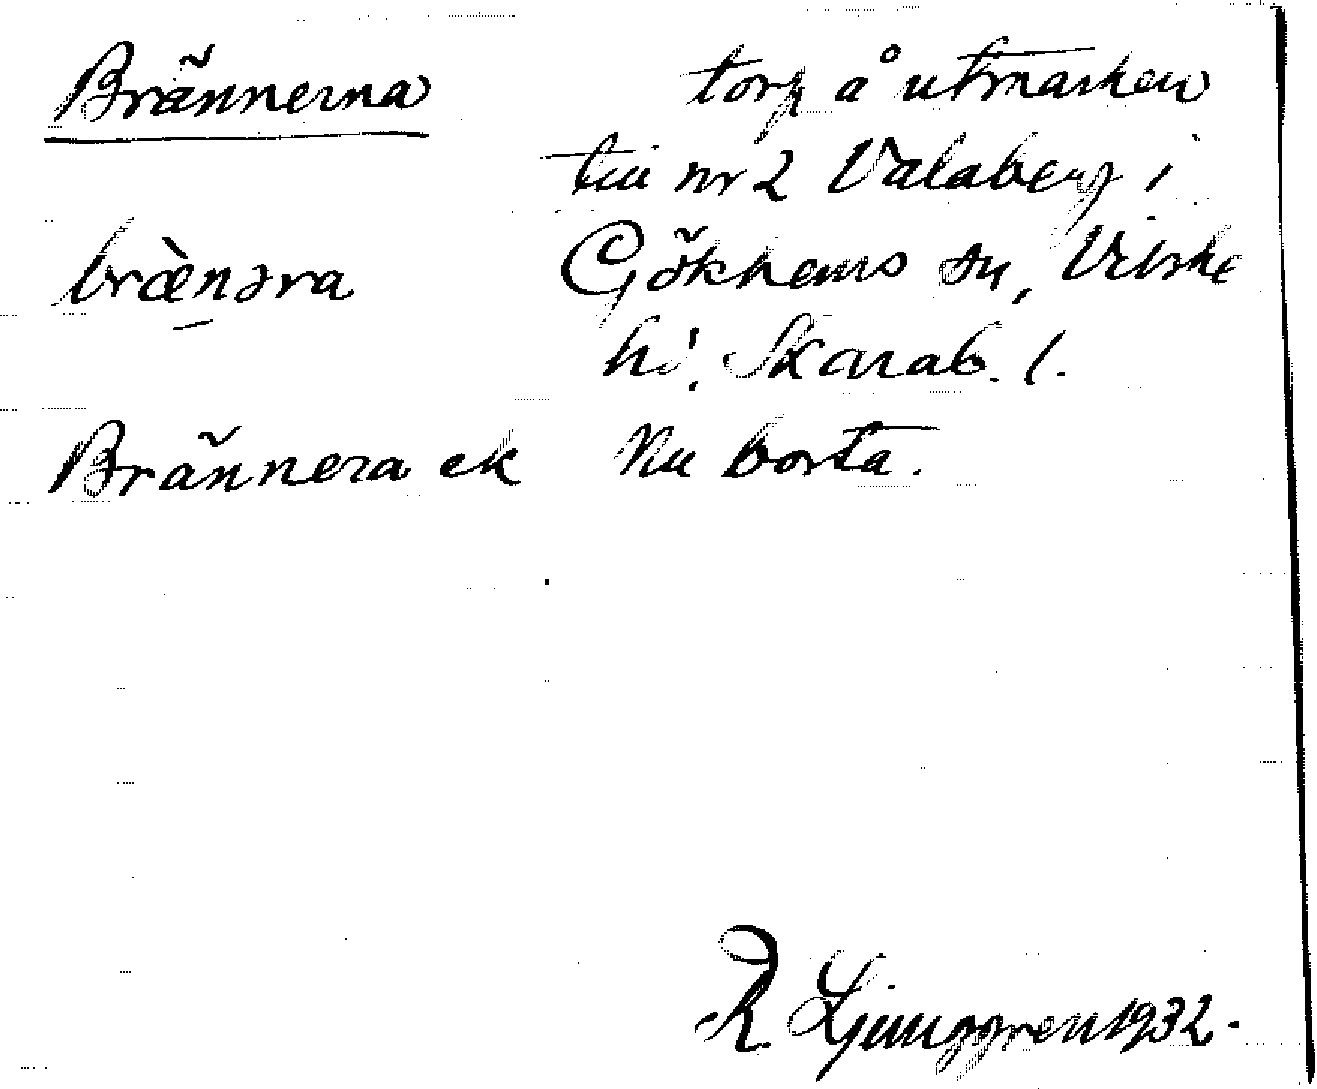 Brännerna torp å utmarken
till nr 2 Valaberg i
bræ̀nəra Gökhems sn, Vilske
hd. Skarab. l.
Brännera ek Nu borta.
R. Ljunggren 1932.